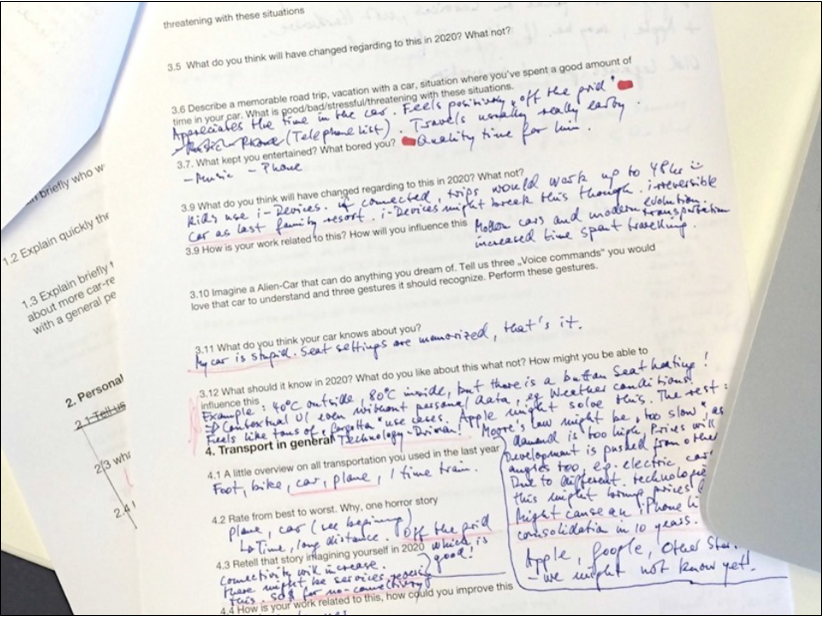 threatening with these situations
3.5 What do you think will have changed regarding to this in 2020? What not?
3.6 Describe a memorable road trip, vacation with a car, situation where you've spent a good amount of
time in your car. What is good/bad/stressful/threatening with these situations.
Appreciates the time in the car. Feels positively "off the grid".
Phone (Telephone list). Travels usually really early.
Quality time for him.
3.7. What kept you entertained? What bored you?
- Music - Phone
3.9 What do you think will have changed regarding to this in 2020? What not?
Kids use i-Devices. If connected, trips would work up to 48hrs
car as last family resort. i-Devices might break this though. irreversible
evolution.
3.9 How is your work related to this? How will you influence this
Modern cars and modern transportation
increased time spent travelling.
3.10 Imagine a Alien-Car that can do anything you dream of. Tell us three „Voice commands" you would
love that car to understand and three gestures it should recognize. Perform these gestures.
3.11 What do you think your car knows about you?
My car is stupid. Seat settings are memorized, that's it.
3.12 What should it know in 2020? What do you like about this what not? How might you be able to
influence this
Example: 40°C outside, 80°C inside, but there is a button seat heating!
Contextual UI even without personal data, eg Weather conditions!
Feels like tons of "forgotten" use cases. Apple might solve this. The rest:
Technology-Driven! Moore's law might be "too slow" as
demand is too high. Prices will
Development is pushed from other
angles too, e.g. electric car
Due to different technologie
this might bring prices
Might cause an iPhone li
consolidation in 10 years.
Apple, Google, Other
- we might not know yet!
4. Transport in general
4.1 A little overview on all transportation you used in the last year
Foot, bike, car, plane, 1 time train.
4.2 Rate from best to worst. Why, one horror story
plane, car (see beginning)
Time, long distance. Off the grid
which is
good!
4.3 Retell that story imagining yourself in 2020
Connectivity will increase.
There might be services
this. for no-connectivity
4.4 How is your work related to this, how could you improve this
briefly who w
1.2 Explain quickly the
1.3 Explain briefly
about more car-re
with a general pe
2. Personal
2.1 Tell us
2.3 wha
2.4